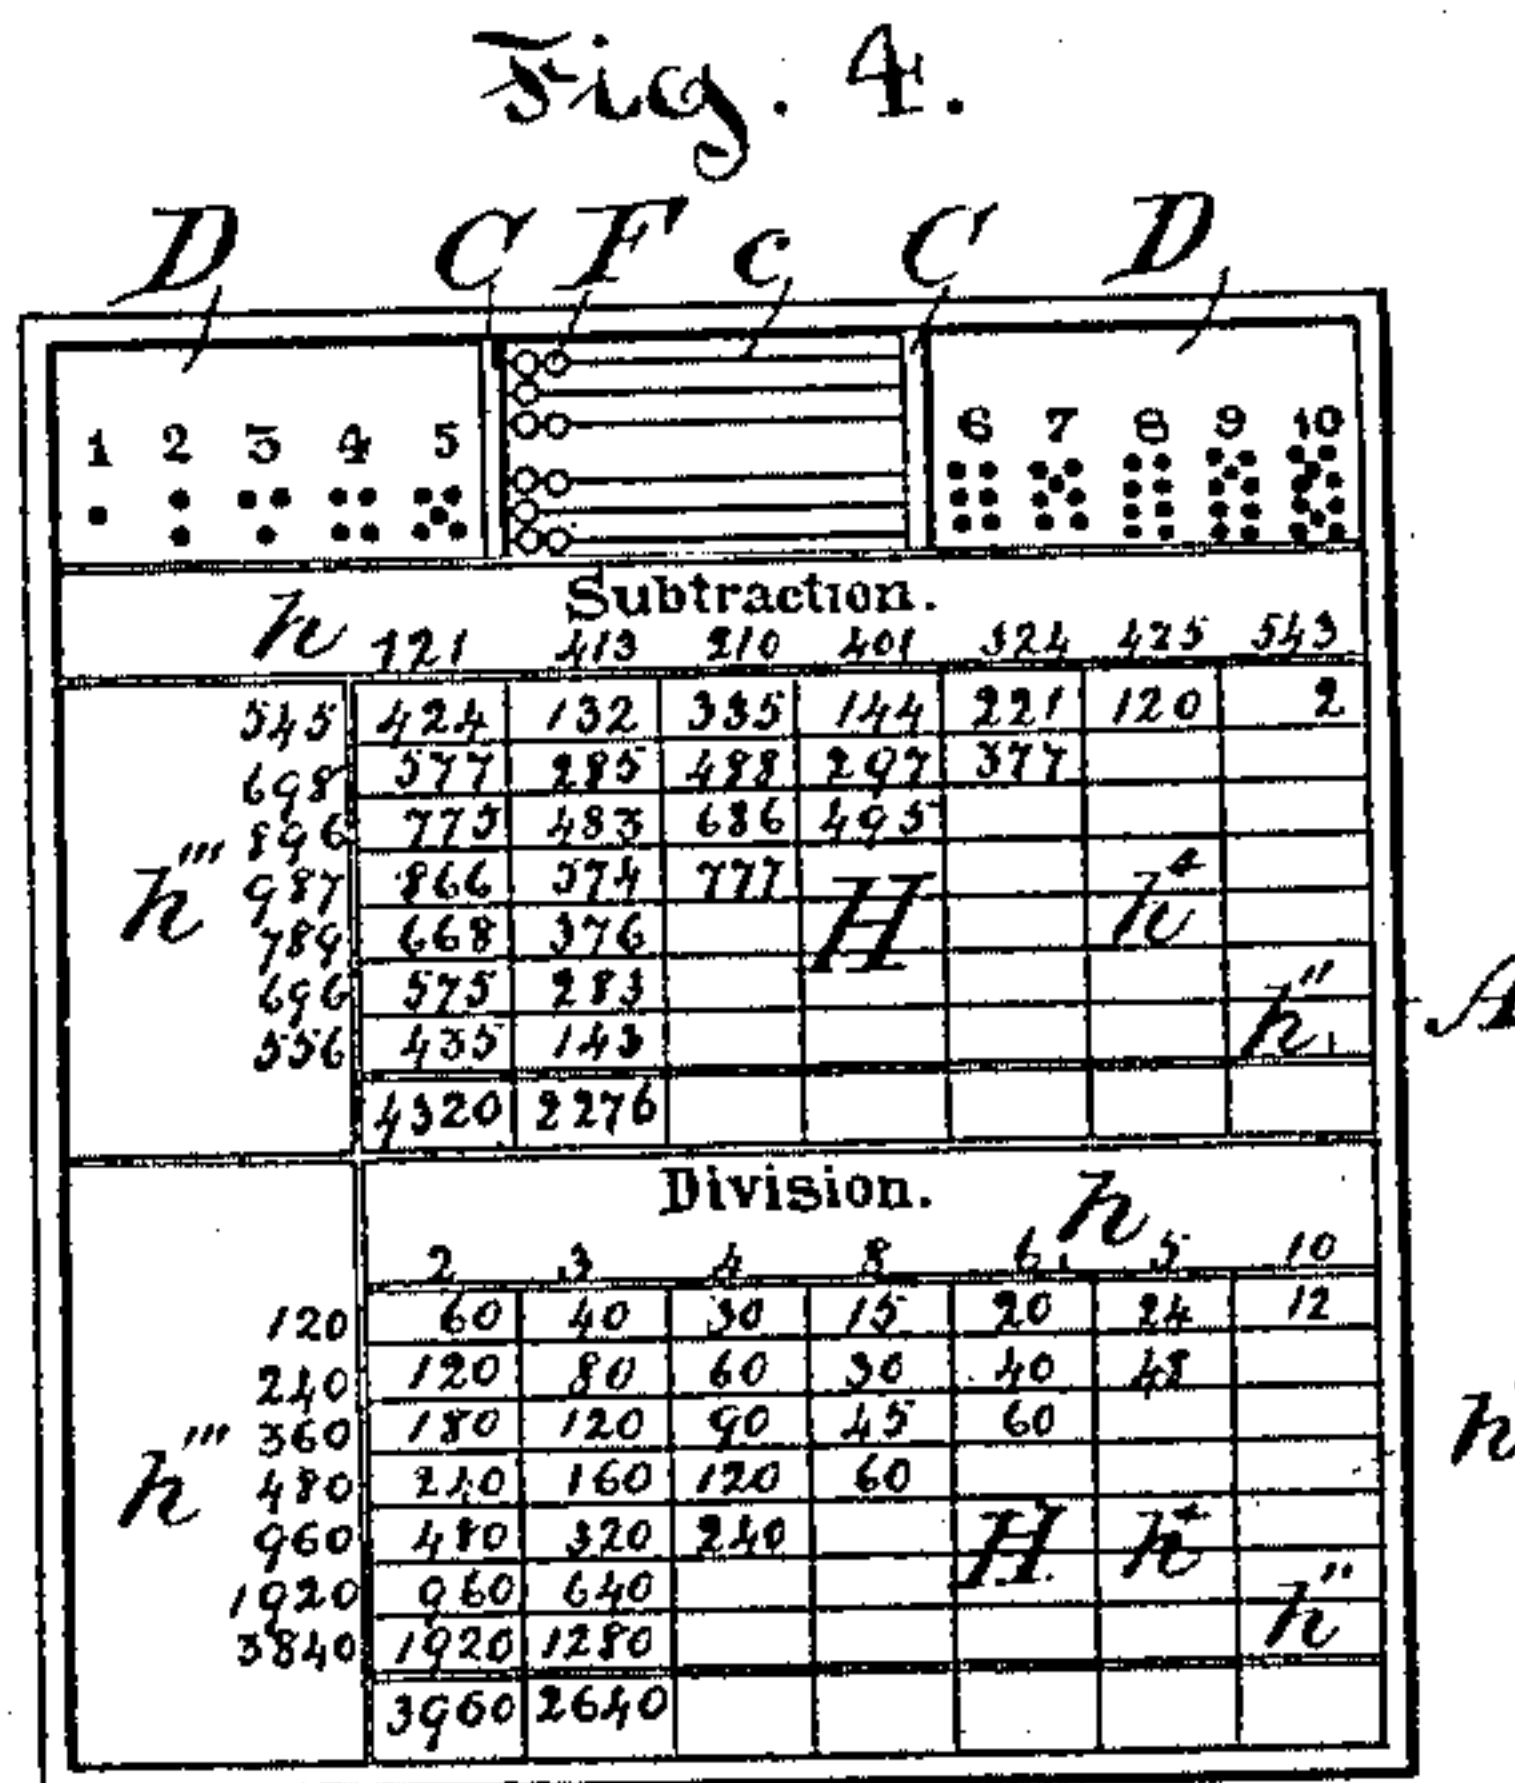 Fig. 4.
D C F c C D
1 2 3 4 5 6 7 8 9 10
Subtraction.
h 121 413 210 401 324 425 543
545 424 132 335 144 221 120 2
698 577 285 488 297 377
896 775 483 686 495
h''' 987 866 574 777 H h⁴
789 668 376
696 575 283 h'' A
556 435 143
4320 2276
Division. h
2 3 4 8 6 5 10
120 60 40 30 15 20 24 12
240 120 80 60 30 40 48
h''' 360 180 120 90 45 60 h
480 240 160 120 60
960 480 320 240 H h⁴
1920 960 640 h''
3840 1920 1280
3960 2640